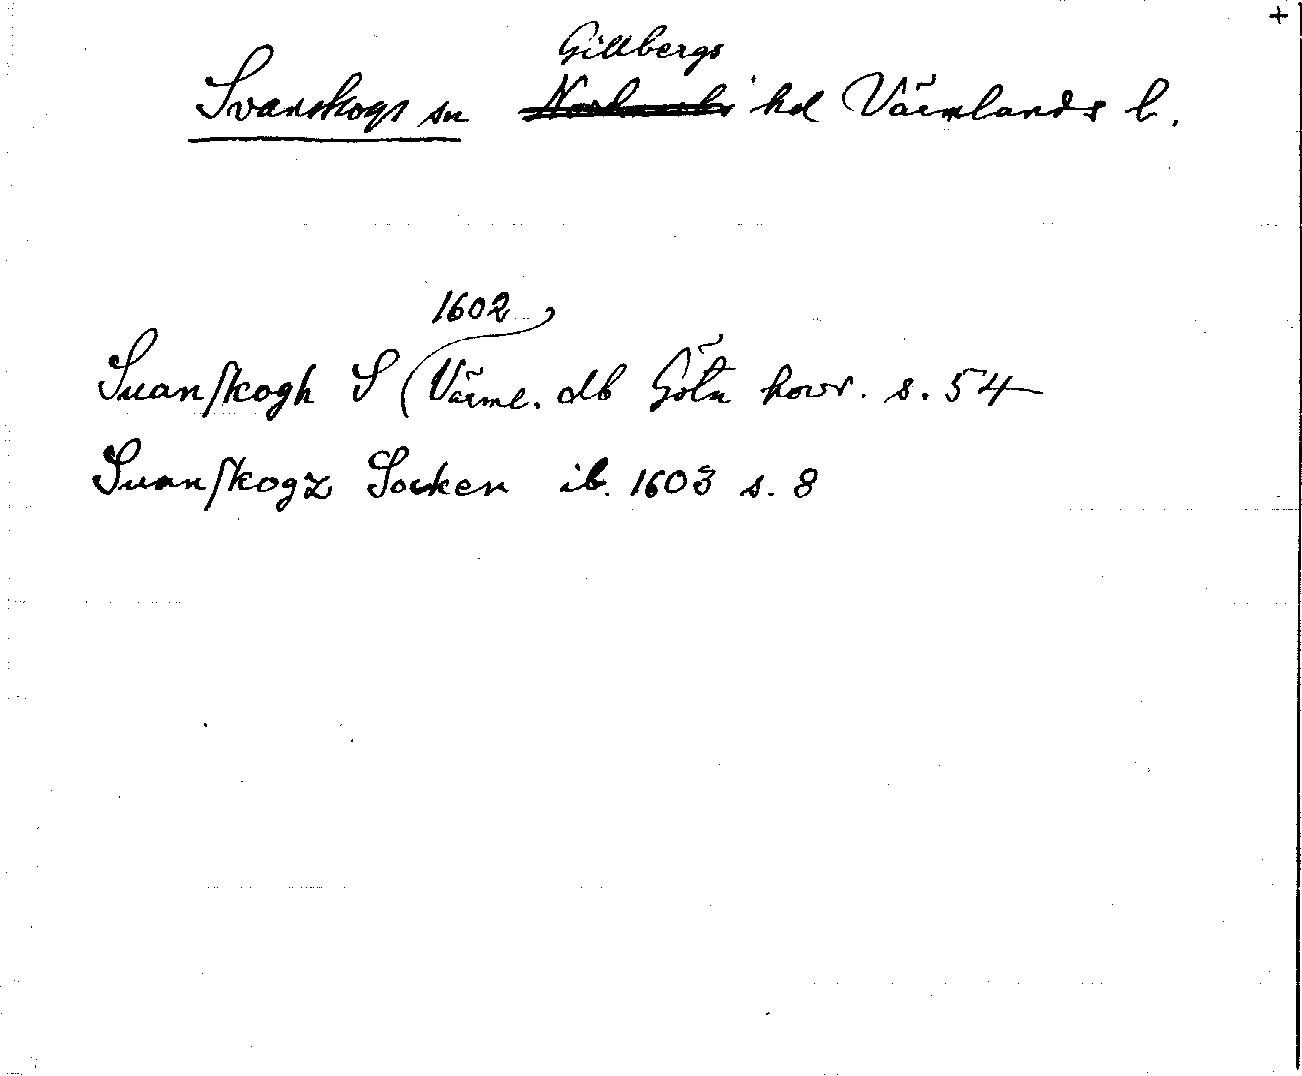 +
Gillbergs
Svanskogs sn hd Värmlands l.
1602
Suanſkogh S (Värml. db Göta hovr. s. 54
Suanſkogz Socken ib. 1603 s. 8